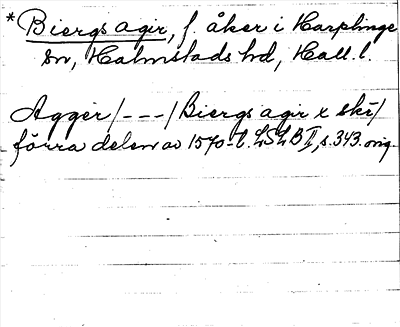 * Biergs agir, f. åker i Harplinge
sn, Halmstads hd, Hall. l.
Agger/---/Biergs agir x skī/
förra delen av 1570-t. LSLB II, s. 343. orig.